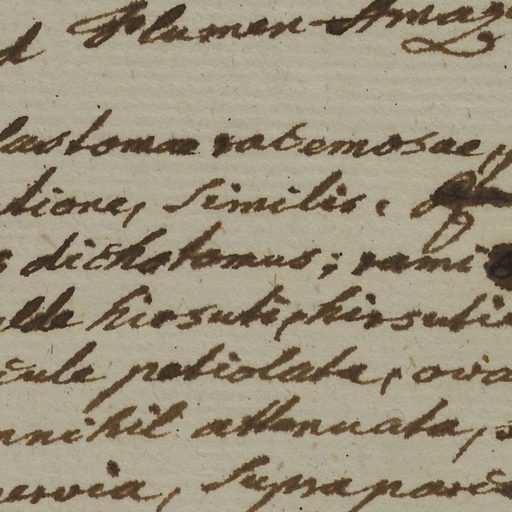 d Flumen Amaz
lastomae racemosae,
tione, similis.
s dichotomus; rami
lde hirsuti, hirsutie
cule petiolata, ova
nnihil attenuata,
nervia, supra parc